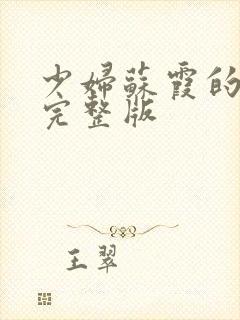 少婦蘇霞的
完整版
王翠